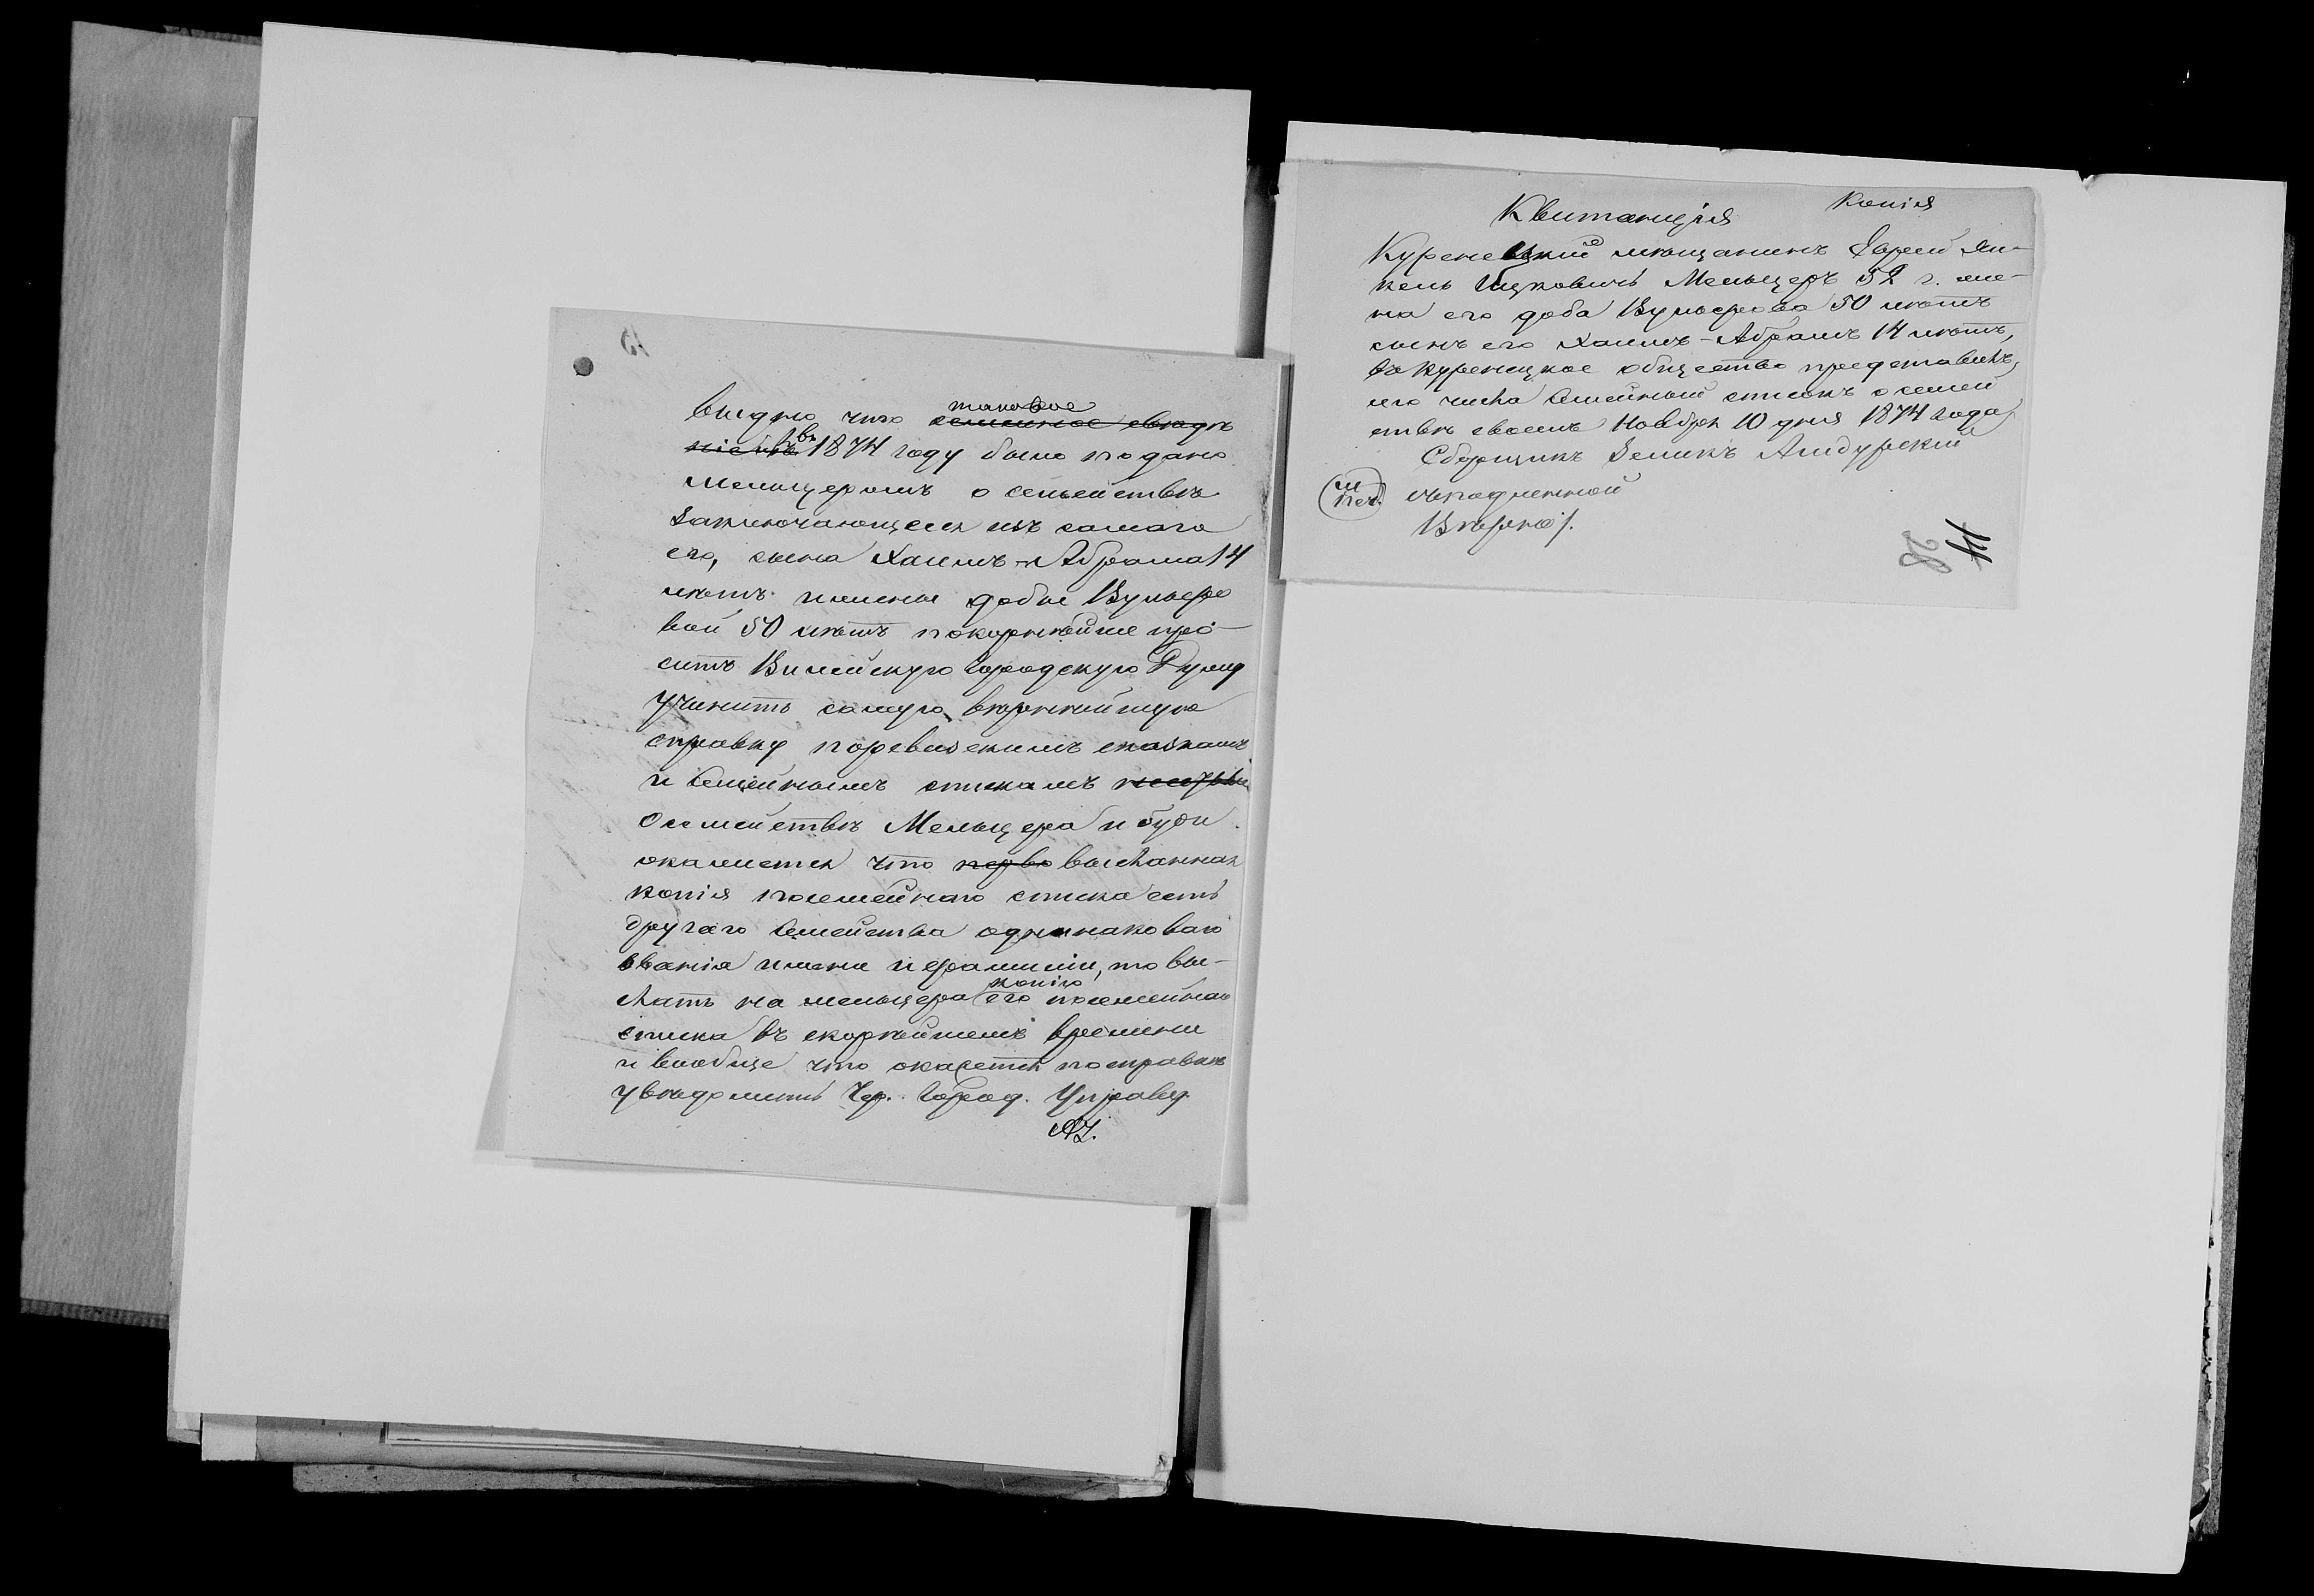 видно что таковое ~~семейное сведѣ~~
~~ніе въ~~ въ 1874 году было подано
Мельцеромъ о семействѣ
заключающемся изъ самаго
его, сына Хаимъ-Абрама 14
лѣтъ и жены Добы Вульфо
вой 50 лѣтъ покорнѣйше про-
ситъ Вилейскую Городскую Думу
учинить самую вѣрнѣйшую
справку по ревизскимъ сказкамъ
и Семейнымъ спискамъ
о семействѣ Мельцера и буде
окажется что ~~перво~~ высланная
копія посемейнаго списка есть
другаго Семейства одинаковаго
званія имени и фамиліи, то вы-
слать на Мельцера копію его посемейнаго
списка въ скорѣйшемъ времени
и вообще что окажется по справкѣ
увѣдомить Чер. Город. Управу.
Квитанція
Копія
Куренецкій мѣщанинъ Еврей Ян-
кель Ицковичъ Мельцеръ 52 г. же-
на его Доба Вульфова 50 лѣтъ
сынъ его Хаимъ-Абрамъ 14 лѣтъ,
въ Куренецкое общество представилъ,
его числа Семейный списокъ о семей
ствѣ своемъ Ноября 10 дня 1874 года
Сборщикъ Зеликъ Амдурскій
М
Печ.
съ подлинной
Вѣрно/.
28